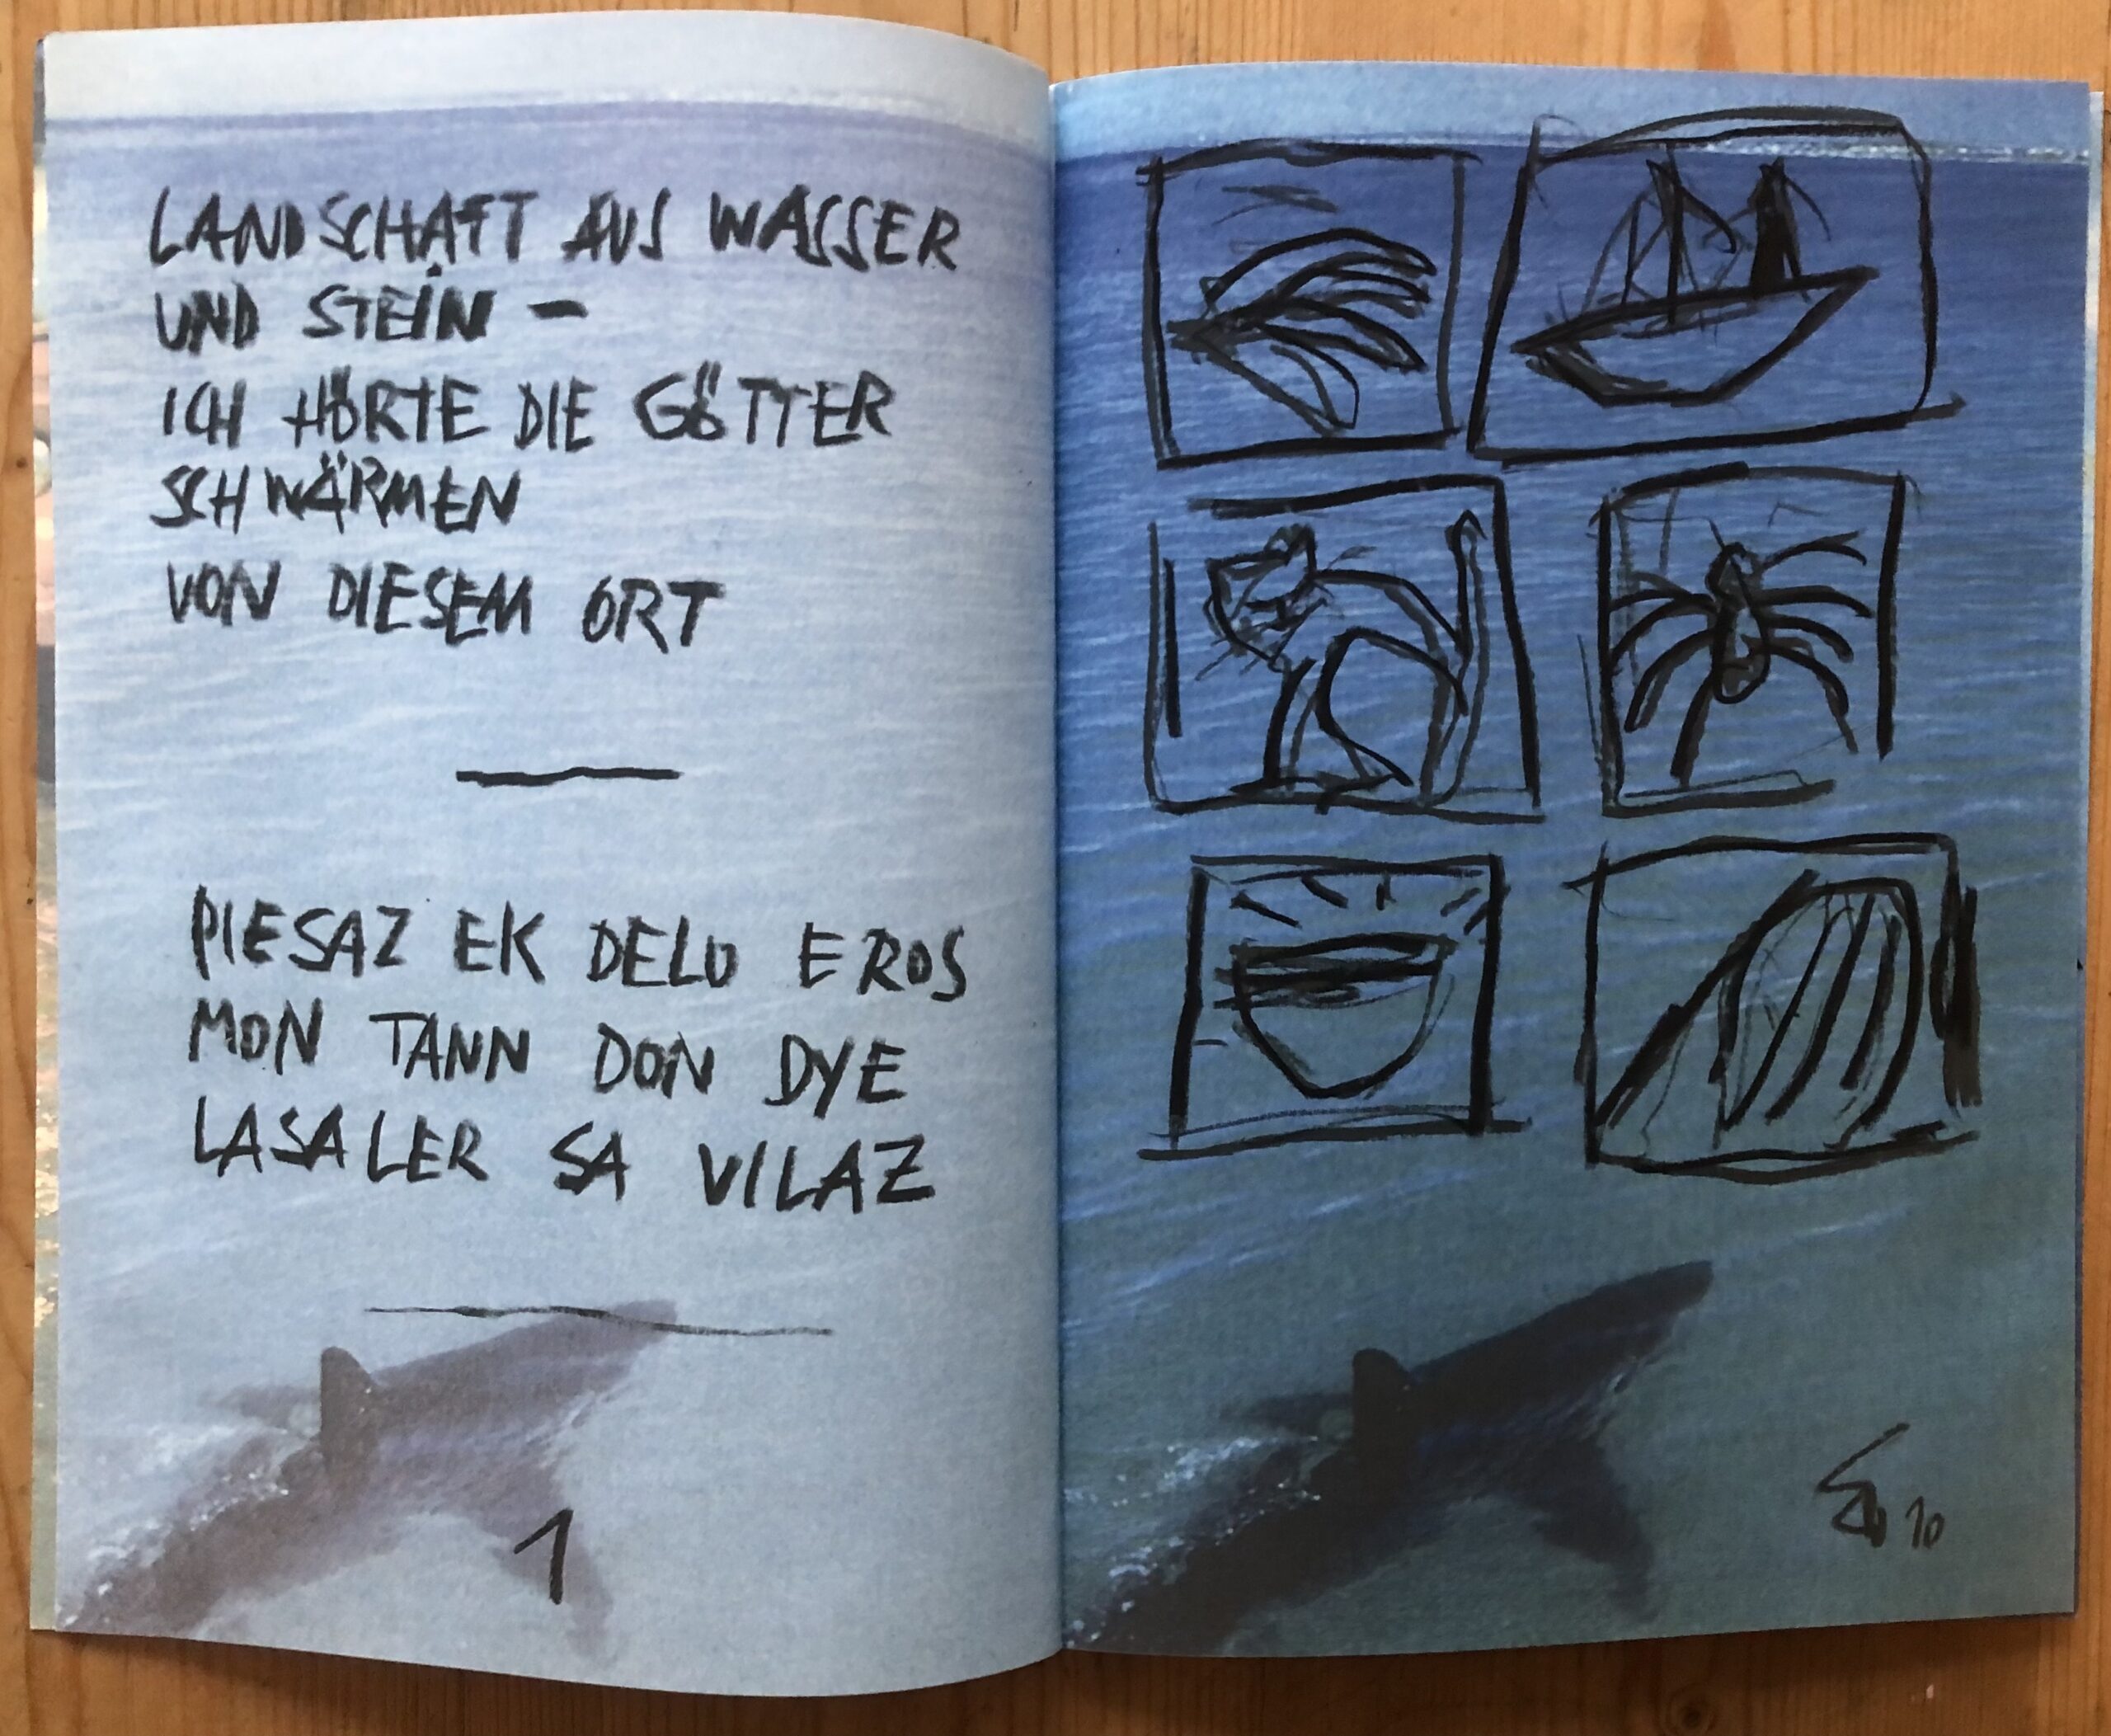 LANDSCHAFT AUS WASSER
UND STEIN –
ICH HÖRTE DIE GÖTTER
SCHWÄRMEN
VON DIESEM ORT
PIESAZ EK DELO EROS
MON TANN DON DYE
LASALER SA VILAZ
1
10